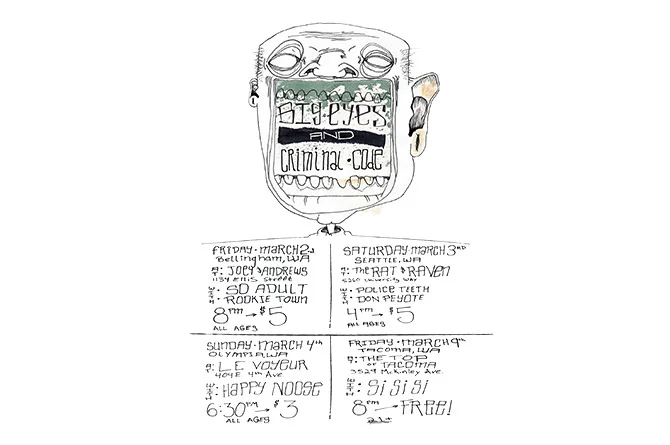 BIG·EYES
AND
CRIMINAL·CODE
FRIDAY·MARCH 2nd
Bellingham, WA
AT: JOEY & ANDREWS
1134 Ellis Street
WITH: SO ADULT
· ROOKIE TOWN
8PM → $5
ALL AGES
SATURDAY·MARCH 3RD
SEATTLE, WA
AT: THE RAT & RAVEN
5260 University Way
WITH: POLICE TEETH
· DON PEYOTE
4PM → $5
ALL AGES
SUNDAY·MARCH 4th
OLYMPIA, WA
AT: LE VOYEUR
404 E 4th Ave
WITH: HAPPY NOOSE
6:30PM → $3
ALL AGES
FRIDAY·MARCH 9th
TACOMA, WA
AT: THE TOP
OF TACOMA
3529 McKinley Ave.
WITH: Si Si Si
8PM → FREE!